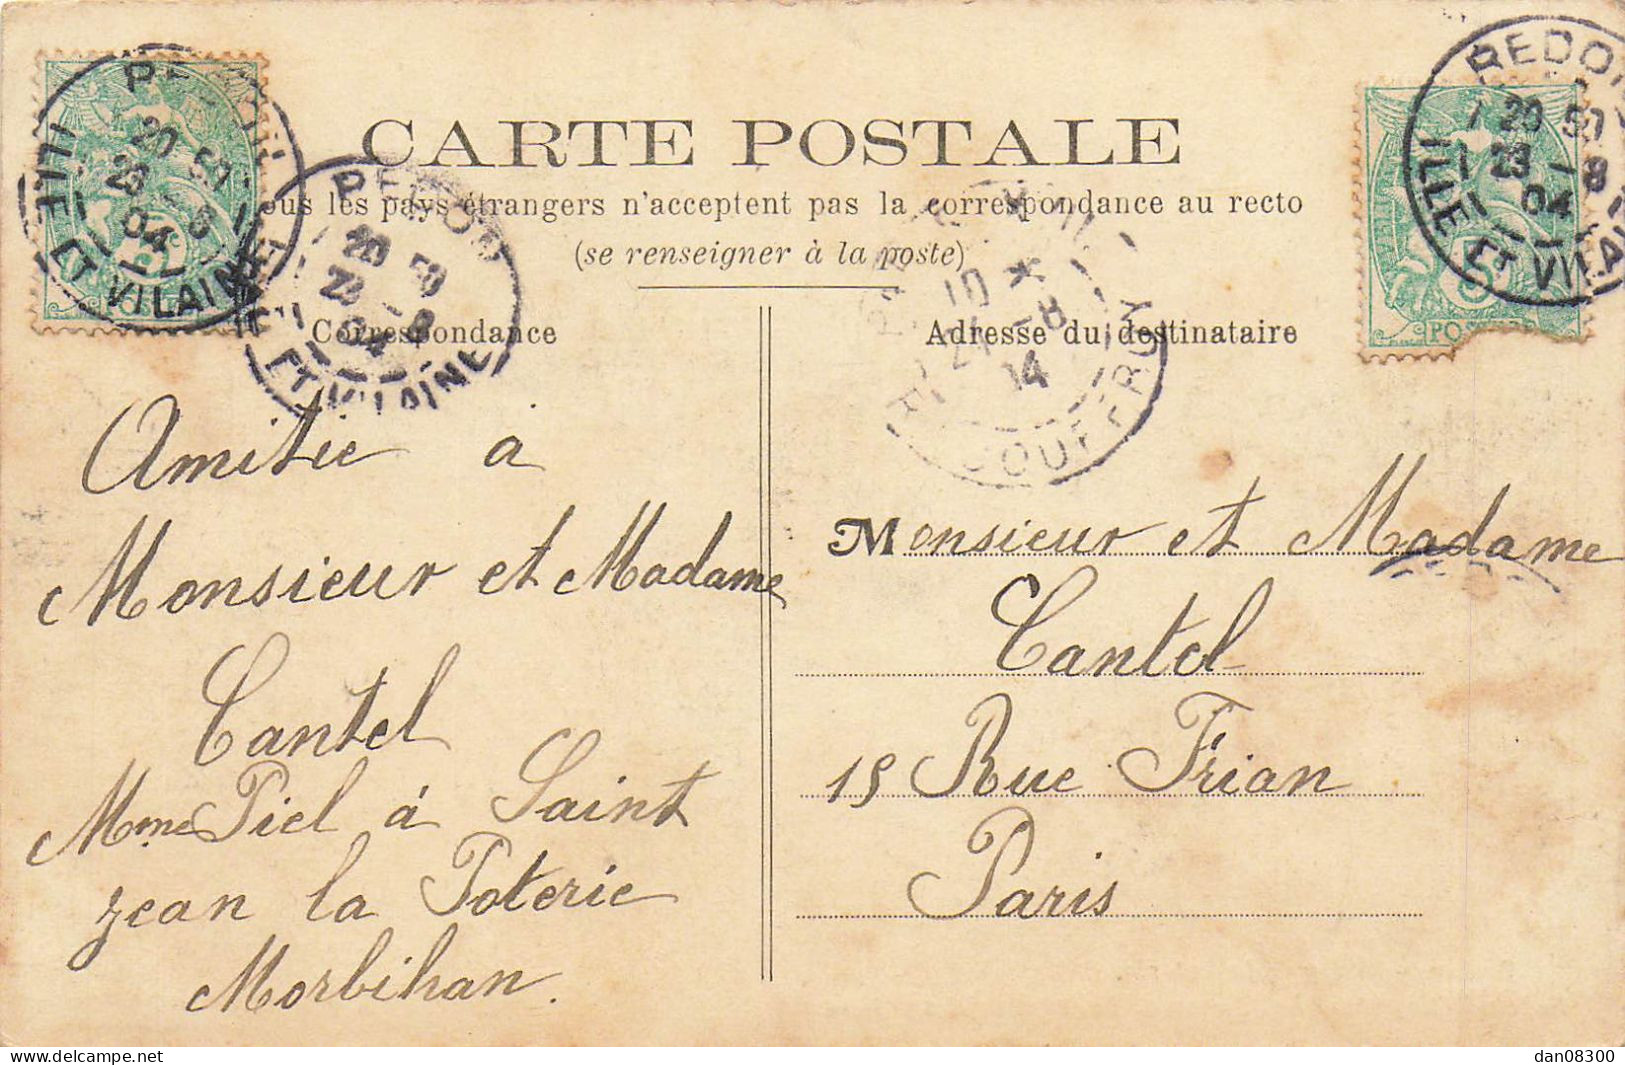 CARTE POSTALE
ous les pays étrangers n'acceptent pas la correspondance au recto
(se renseigner à la poste)
Correspondance
Adresse du destinataire
REDON
20 50
23 - 8
04
ILLE ET VILAINE
REDON
20 50
23 - 8
04
ET VILAINE
REDON
20 50
23 - 8
04
ILLE ET VILAINE
POSTES
Amitie à
Monsieur et Madame
Cantel
Mme Piel à Saint
jean la Poterie
Morbihan.
Monsieur et Madame
Cantel
15 Rue Frian
Paris
delcampe.net
dan08300